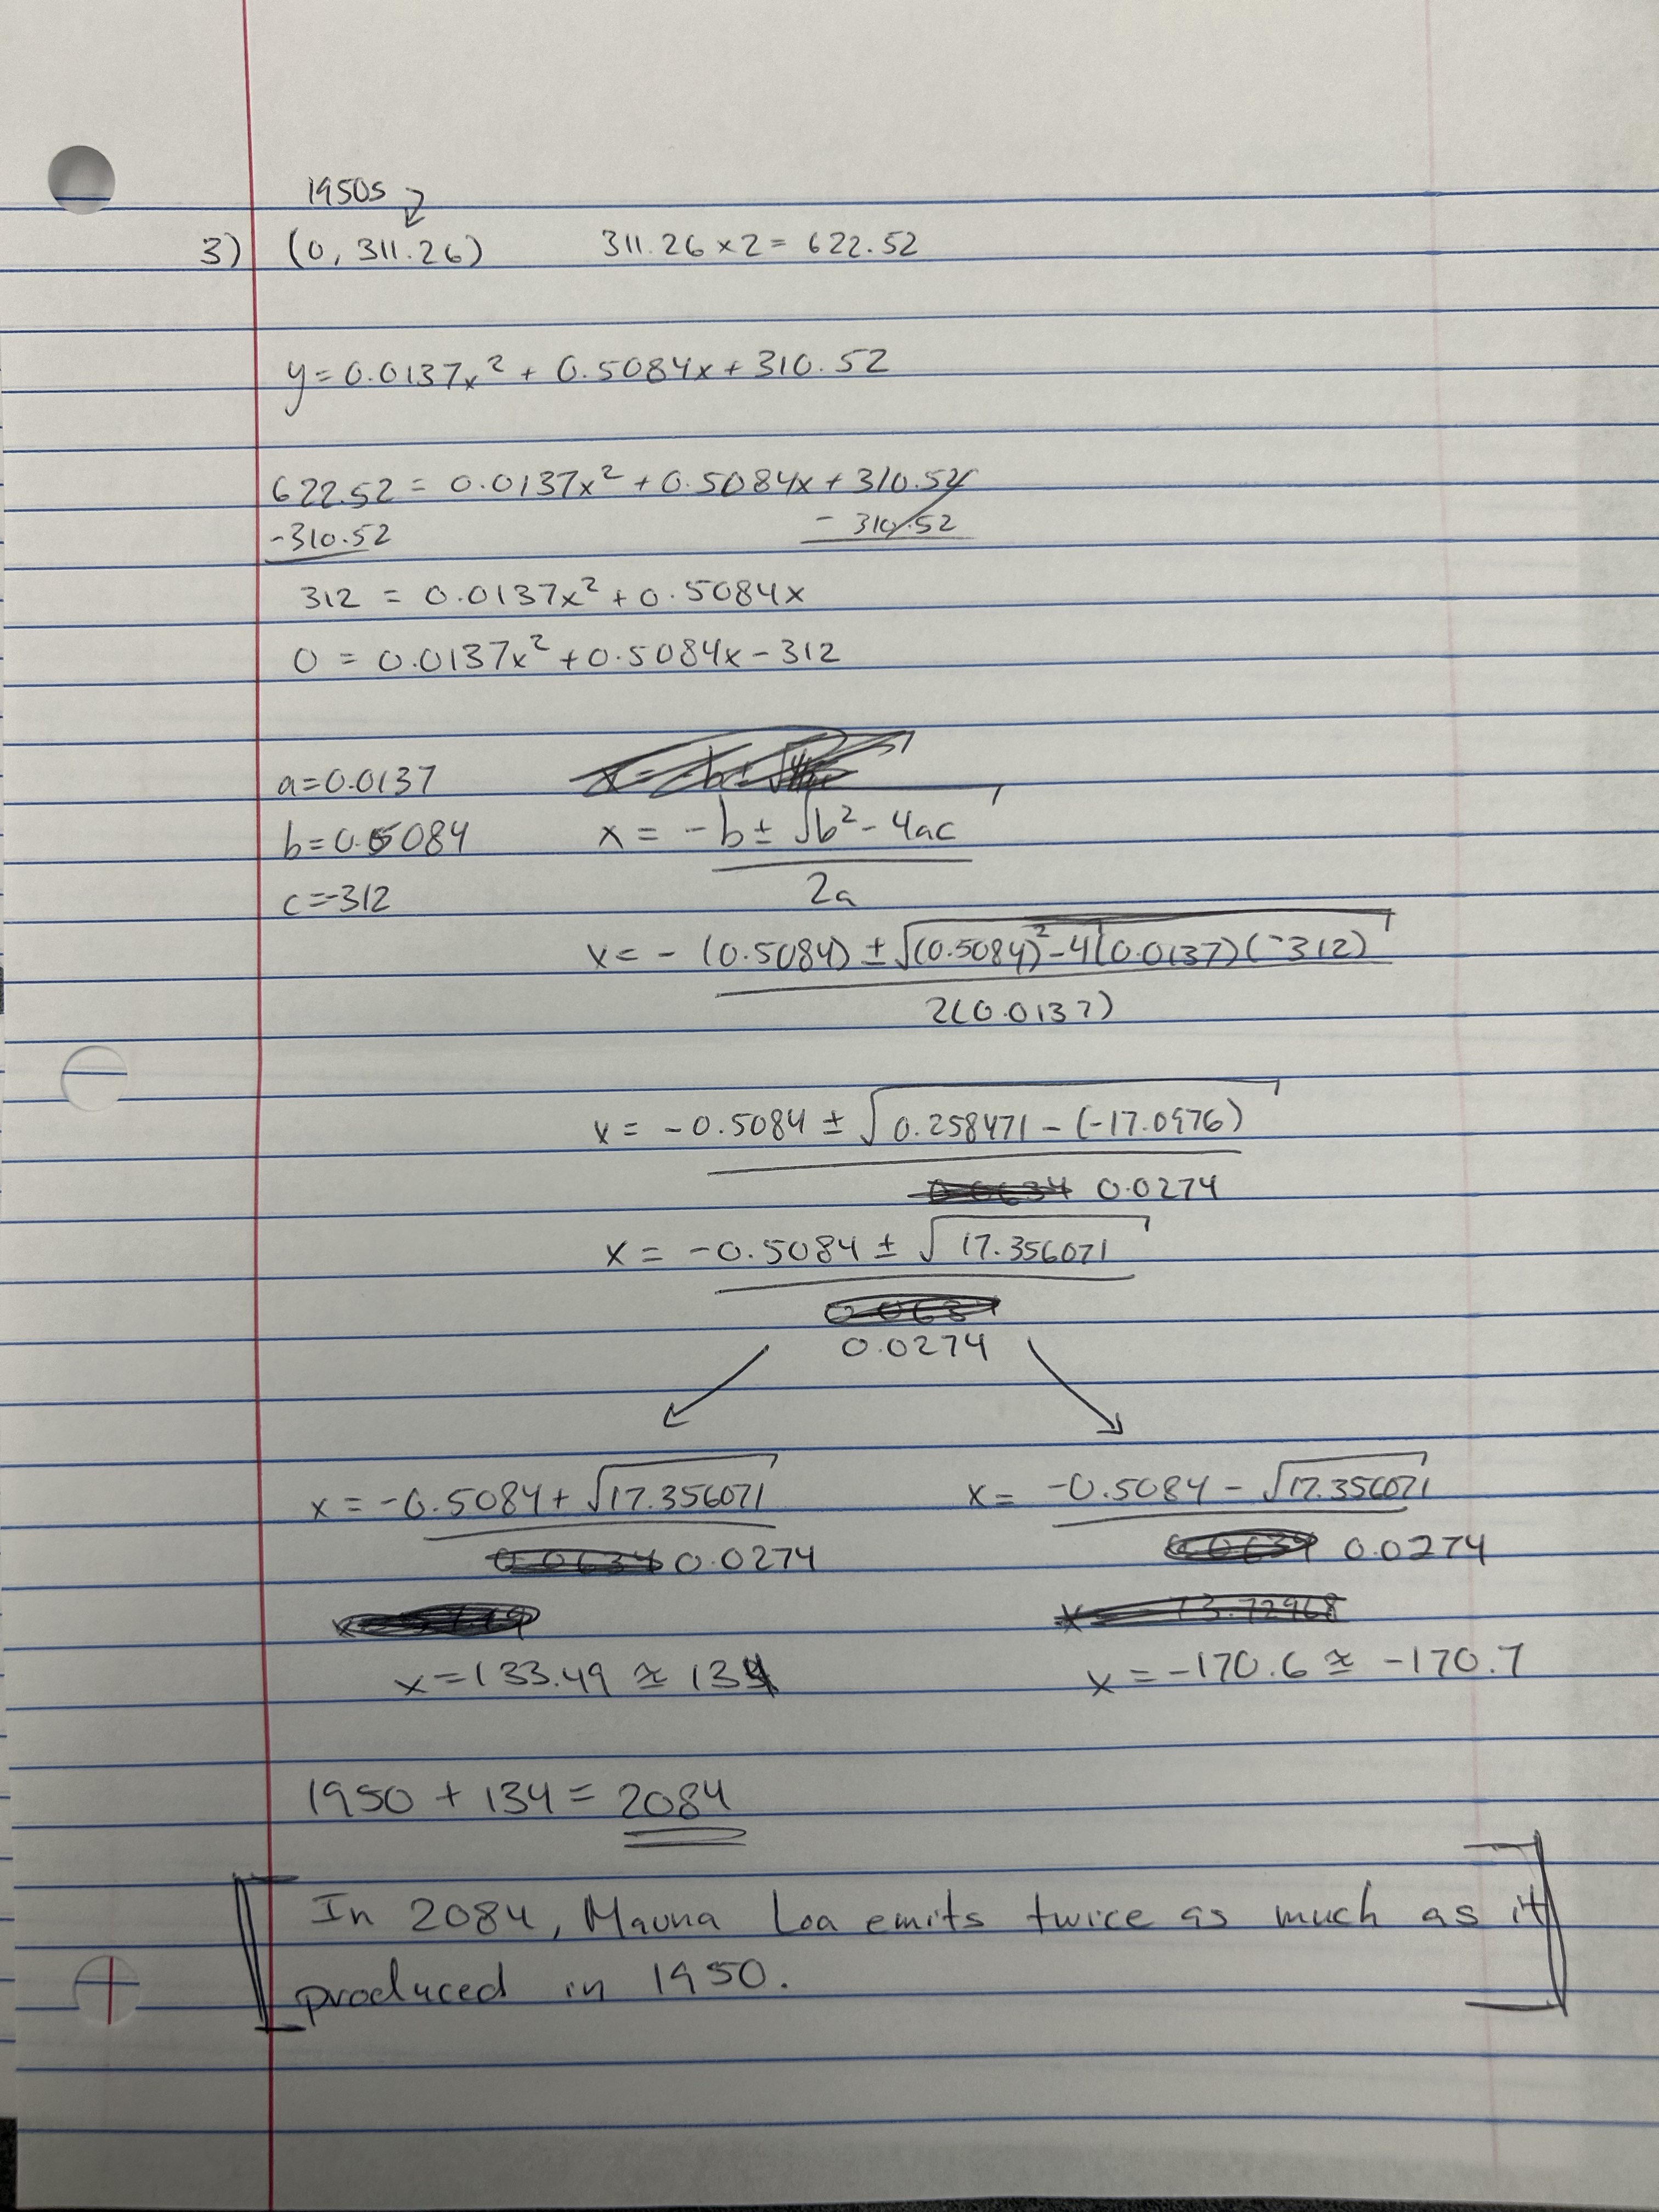 1950s
3) (0, 311.26) 311.26 × 2 = 622.52
y = 0.0137x² + 0.5084x + 310.52
622.52 = 0.0137x² + 0.5084x + 310.52
-310.52 - 310.52
312 = 0.0137x² + 0.5084x
0 = 0.0137x² + 0.5084x - 312
a = 0.0137
b = 0.5084 x = -b ± √b² - 4ac
c = -312 2a
x = - (0.5084) ± √(0.5084)² - 4(0.0137)(-312)
2(0.0137)
x = -0.5084 ± √0.258471 - (-17.0976)
0.0274
x = -0.5084 ± √17.356071
0.0274
x = -0.5084 + √17.356071 x = -0.5084 - √17.356071
0.0274 0.0274
x = 133.49 ≈ 134 x = -170.6 ≈ -170.7
1950 + 134 = 2084
In 2084, Mauna Loa emits twice as much as it
produced in 1950.